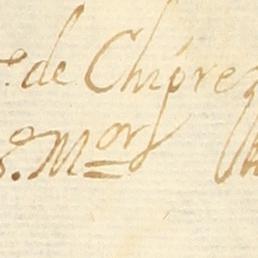 de Chipre
S. Mor